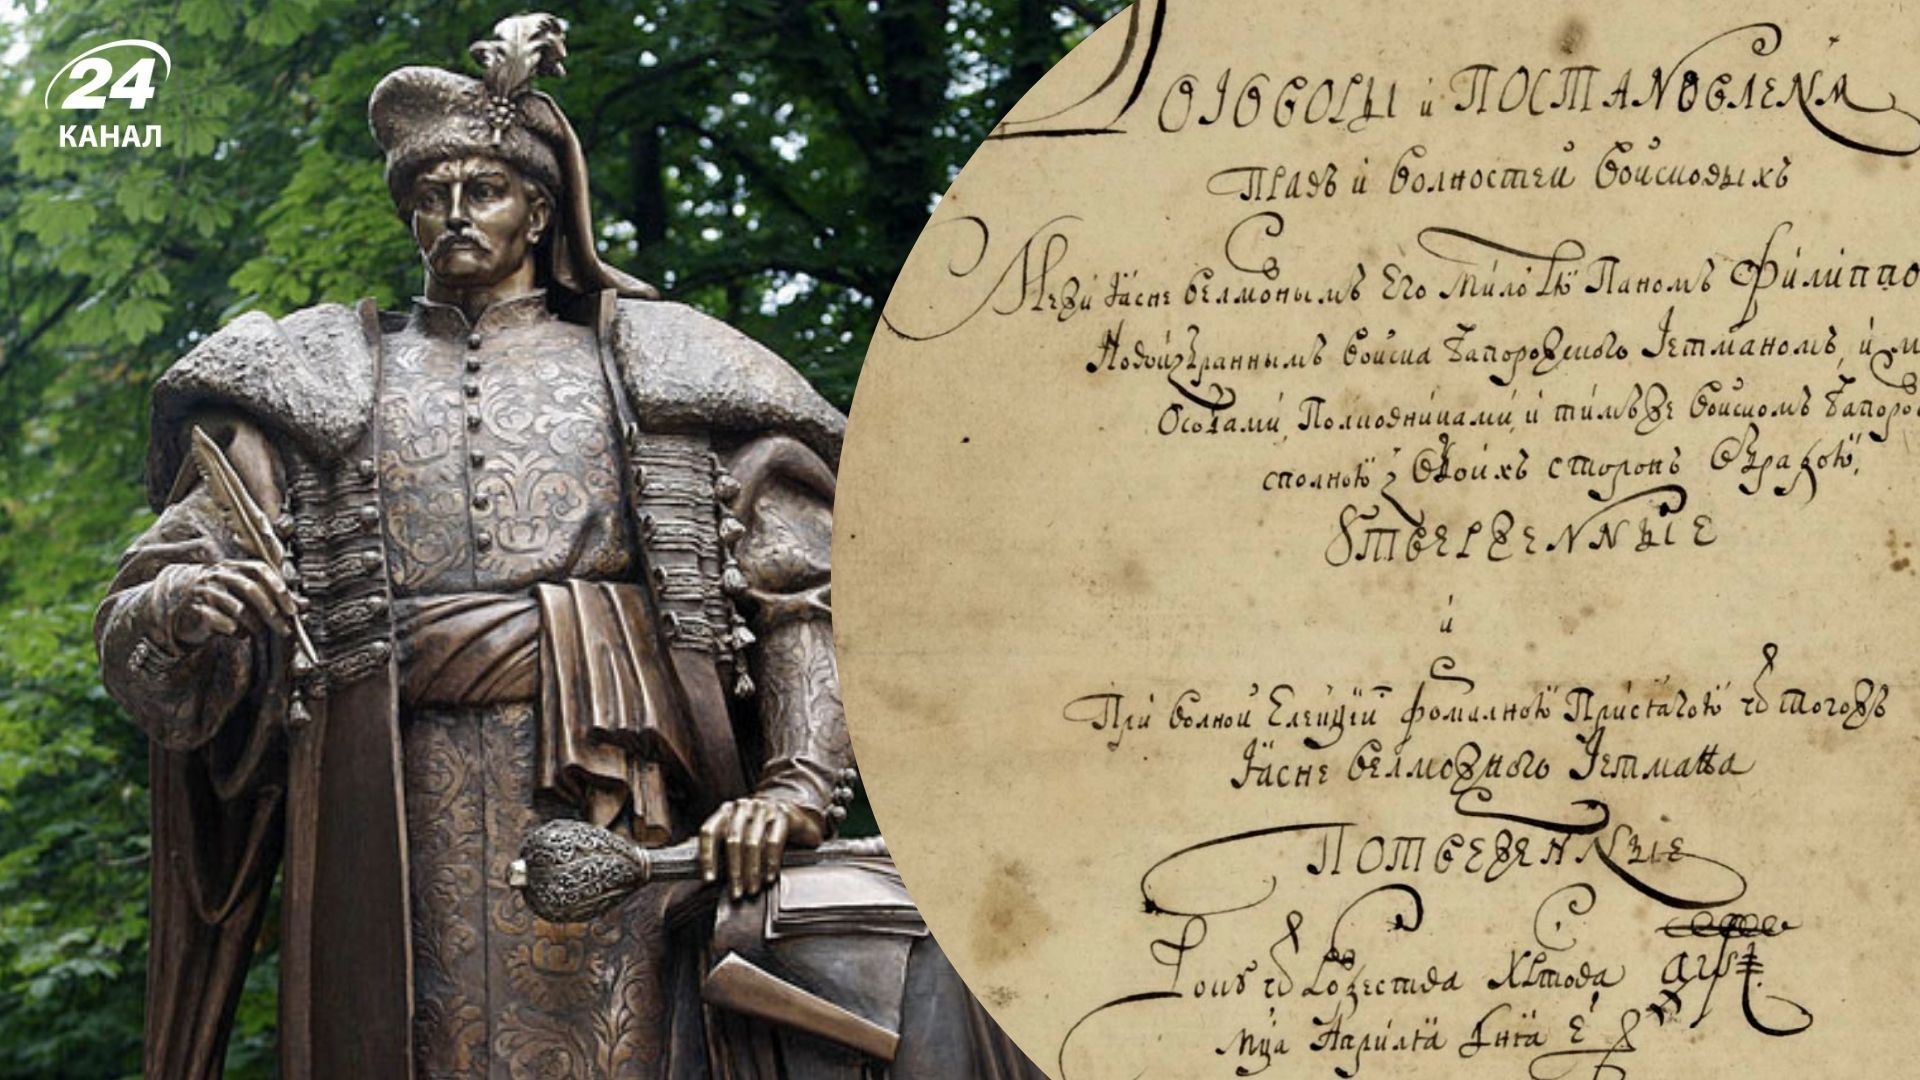 24
КАНАЛ
ДОГОВОРЫ и ПОСТАНОВЛЕНѦ
Правъ и Волностей Войсковыхъ
Межи Ясне Велможнымъ Его Милостю Паномъ Филиппо
Новоизбраннымъ Войска Запорожского Гетманомъ, и
Особами, Полковниками, и тимъже Войскомъ Запоро
сполною з Обоихъ сторонъ Обрадою,
УТВЕРЖЕННЫЕ
и
При Волной Елекціи формалною Присягою ѿ тогожъ
Ясне Велможного Гетмана
ПОТВЕРЖЕННЫЕ
Року ѿ Рожества Христова
Мца Априля